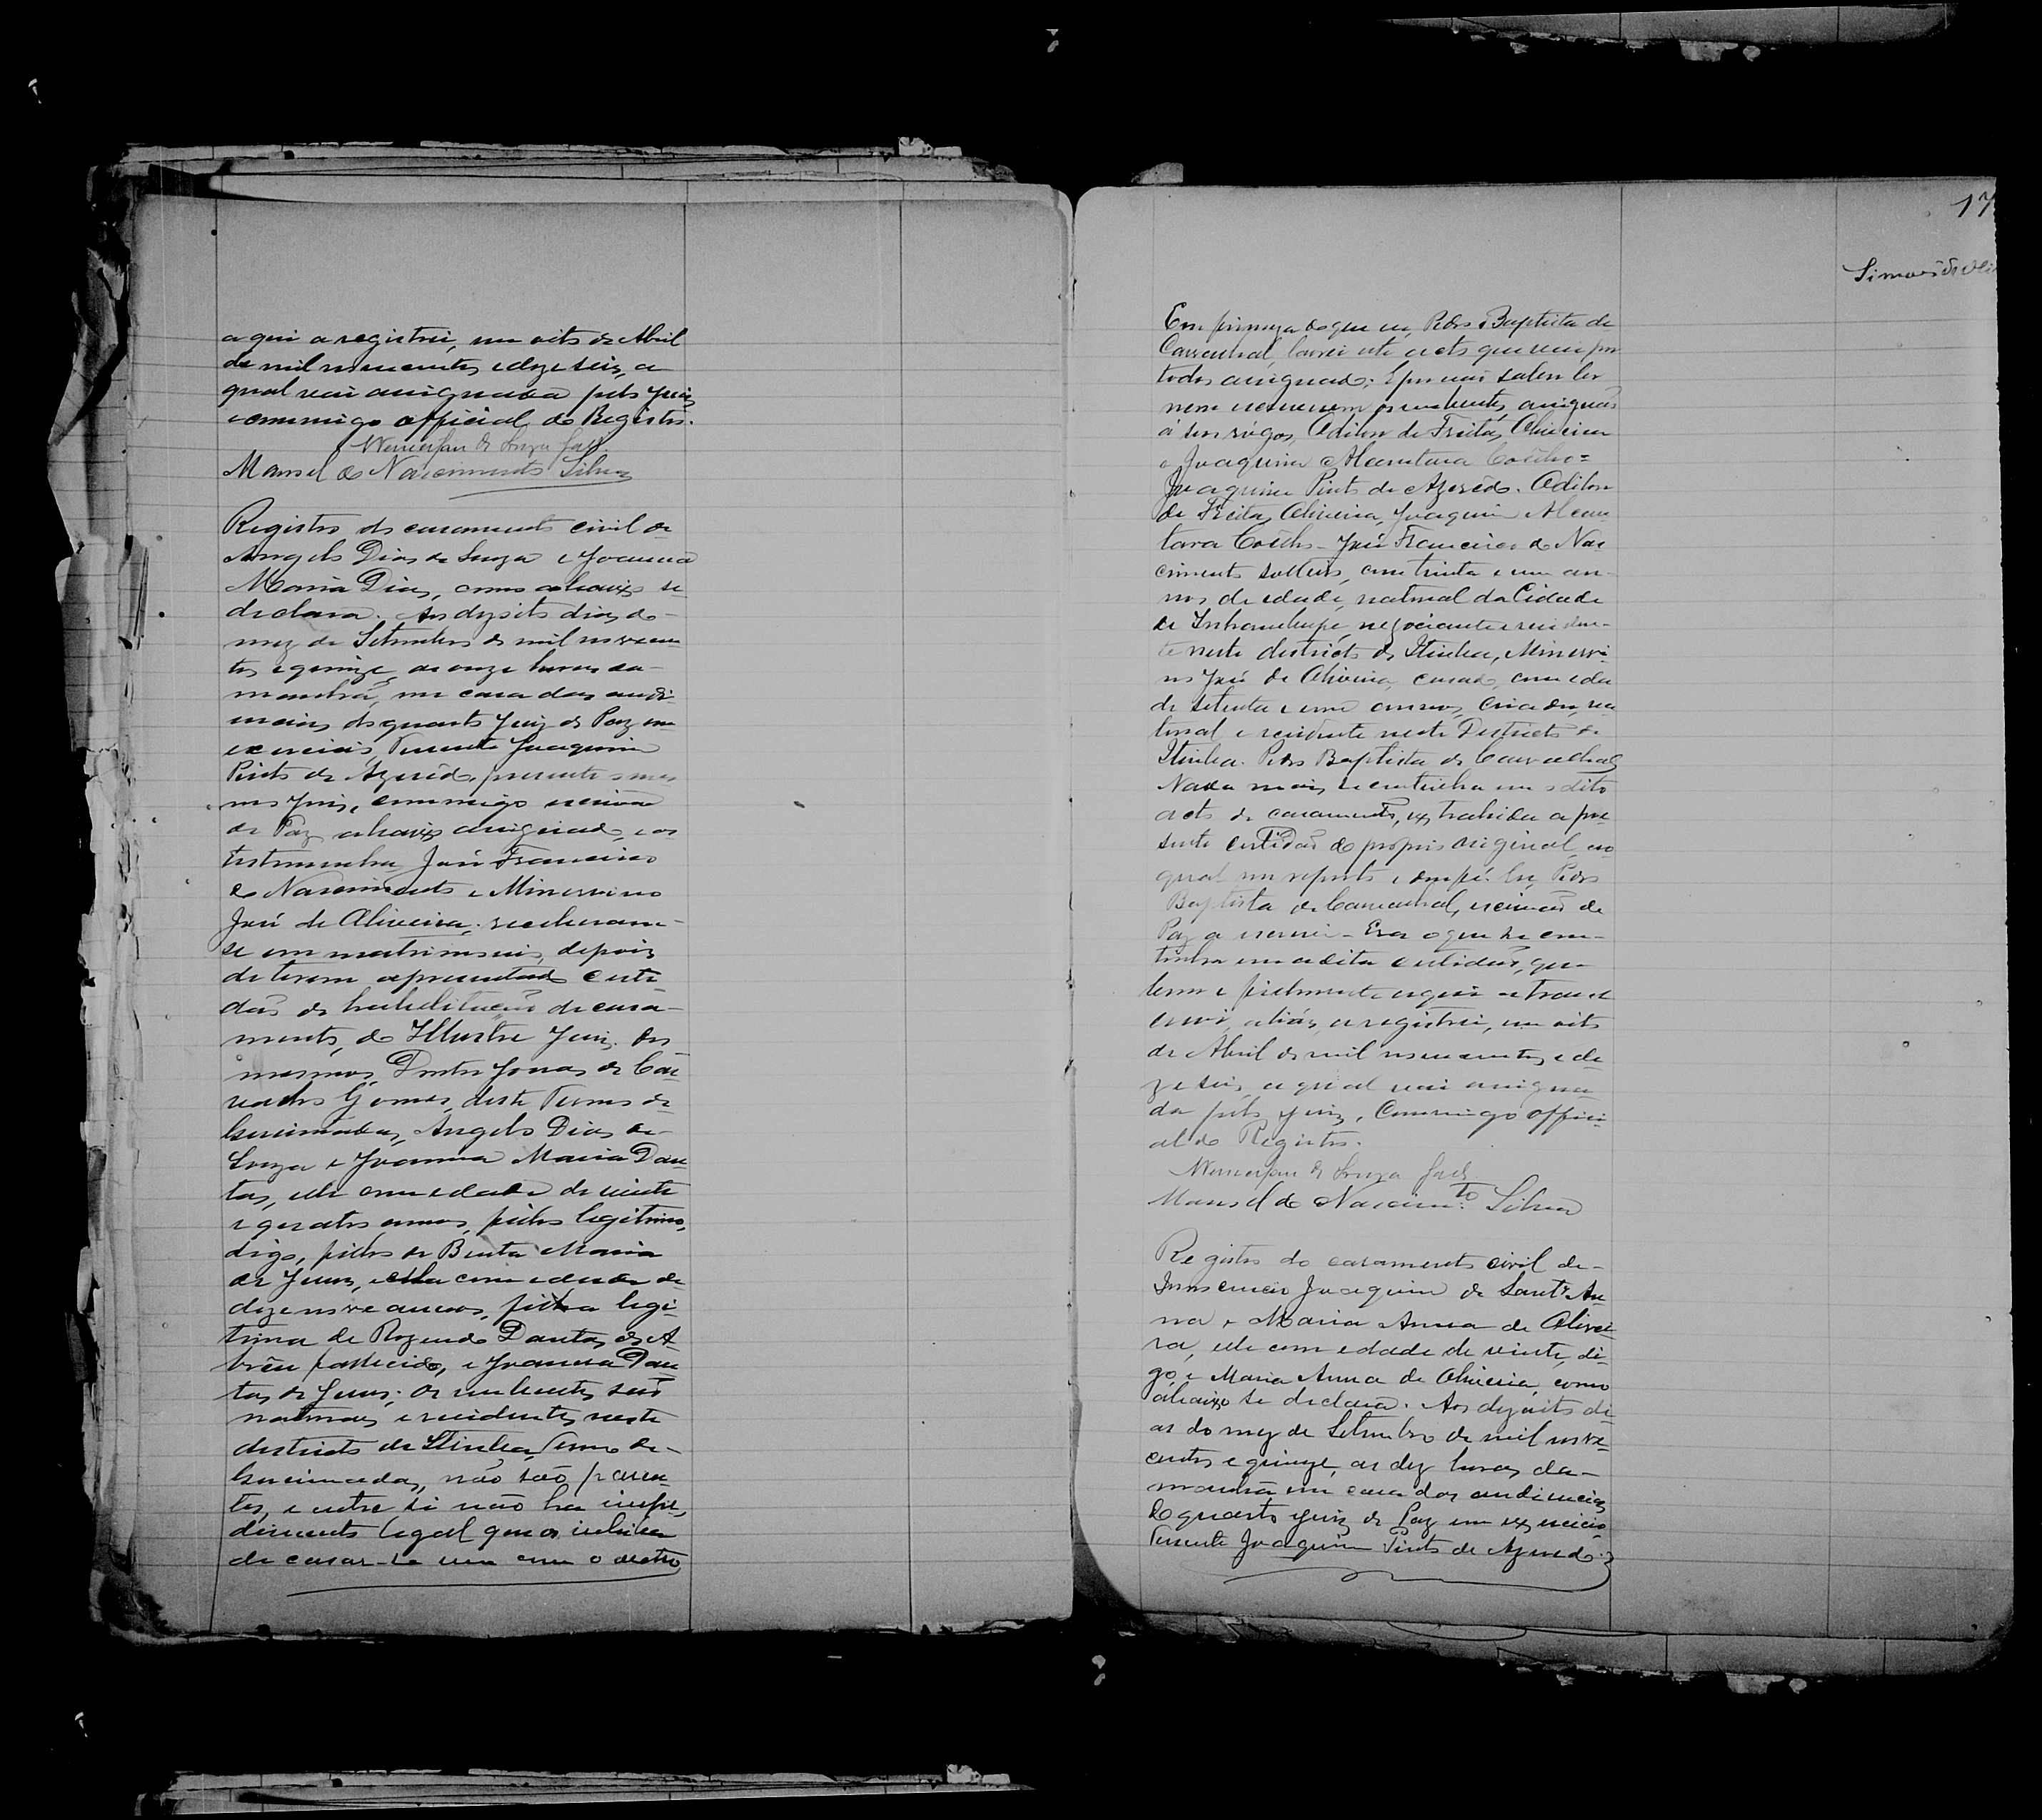 aqui a registrei, em oito de Abril
de mil novecentos e dezeseis, a
qual vai assignada pelo Juiz
e commigo official do Registro.
de Souza
Manoel do Nascimento Silva
Registro do casamento civil de
Angelo Dias de Souza e Joanna
Maria Dias, como abaixo se
declara. Aos dezoito dias do
mez de Setembro de mil novecen
tos e quinze, as onze horas da
manhã, em casa das audi
encias do quarto Juiz de Paz em
exercicio, Tenente Joaquim
Pinto de Azevêdo, presente o mes
mo Juiz, commigo escrivão
de Paz abaixo assignado, e as
testemunhas José Francisco
do Nascimento e Minervino
José de Oliveira, receberam-
se em matrimonio, depois
de terem apresentado certi
dão de habilitação de casa-
mento, do Illustre Juiz dos
mesmos, Doutor Jonas de Car
valho Gomes, deste Termo de
Angelo Dias de
Souza e Joanna Maria Dan
tas, elle com edade de vinte
e quatro annos, filho legitimo,
digo, filho de Benta Maria
de Jesus, e ella com edade de
dezenove annos, filha legi
tima de Rozendo Dantas de A
brêu fallecido, e Joanna Dan
tas de Jesus; os nubentes são
naturaes e residentes neste
districto de Itinha, Termo de
não são paren
tes, e entre si não ha impe
dimento legal que os inhiba
de casar-se um com o outro
17
Simões de Oli
Em firmeza do que eu, Pedro Baptista de
Carvalhal, lavrei este acto que vai por
todos assignado; e por não saber ler
nem escreverem os nubentes, assignão
á seus rógos, Odilon de Freitas Oliveira
e Joaquim Alcantara Coêlho =
Joaquim Pinto de Azevêdo. Odilon
de Freitas Oliveira, Joaquim Alcan
tara Coêlho - José Francisco do Nas
cimento solteiro, com trinta e um an-
nos de edade, natural da Cidade
de Inhambupe, negociante e residen-
te neste districto de Itinha, Minervi-
no José de Oliveira, casado, com eda
de setenta e um annos, creador, na
tural e residente neste Districto de
Itinha. Pedro Baptista de Carvalhal
Nada mais se continha em o dito
acto de casamento, extrahida a pre
sente certidão do proprio original, ao
qual me reporto e dou fé. Eu, Pedro
Baptista de Carvalhal, escrivão de
Paz a escrevi - Era o que se con-
tinha em a dita certidão, que
bem e fielmente aqui a trans
crevi, aliás, a registrei, em oito
de Abril de mil novecentos e de
zeseis, a qual vai assigna
da pelo Juiz, Commigo offici
al do Registro.
de Souza
Manoel do Nascim.to Silva
Registro do casamento civil de
Innocencio Joaquim de Sant'An
na e Maria Anna de Olivei
ra, elle com edade de vinte, di-
go, e Maria Anna de Oliveira, como
abaixo se declara. Aos dezoito di
as do mez de Setembro de mil nove
centos e quinze, as dez horas da
manhã em casa das audiencias
do quarto Juiz de Paz em exercicio
Tenente Joaquim Pinto de Azevedo